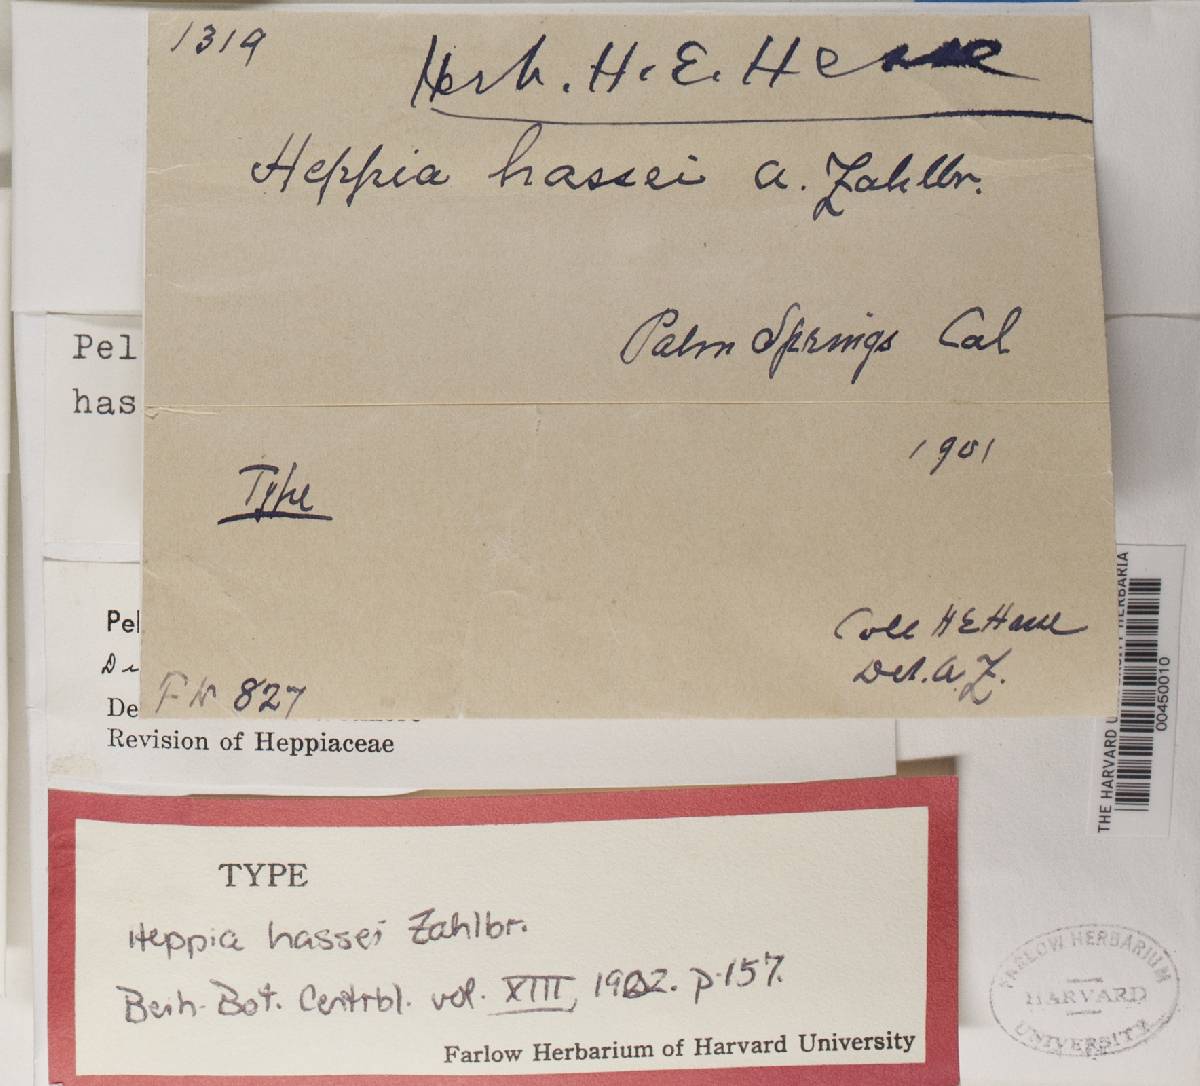 1319
Herb. H. E. Hasse
Heppia hassei A. Zahlbr.
Palm Springs Cal
1901
Type
Coll H E Hasse
Det. A. Z.
827
Pel
has
Pel
De
Revision of Heppiaceae
THE HARVARD UNIVERSITY HERBARIA
00450010
TYPE
Heppia hassei Zahlbr.
Beih. Bot. Centrbl. vol. XIII, 1902. p.157.
Farlow Herbarium of Harvard University
FARLOW HERBARIUM
HARVARD
UNIVERSITY